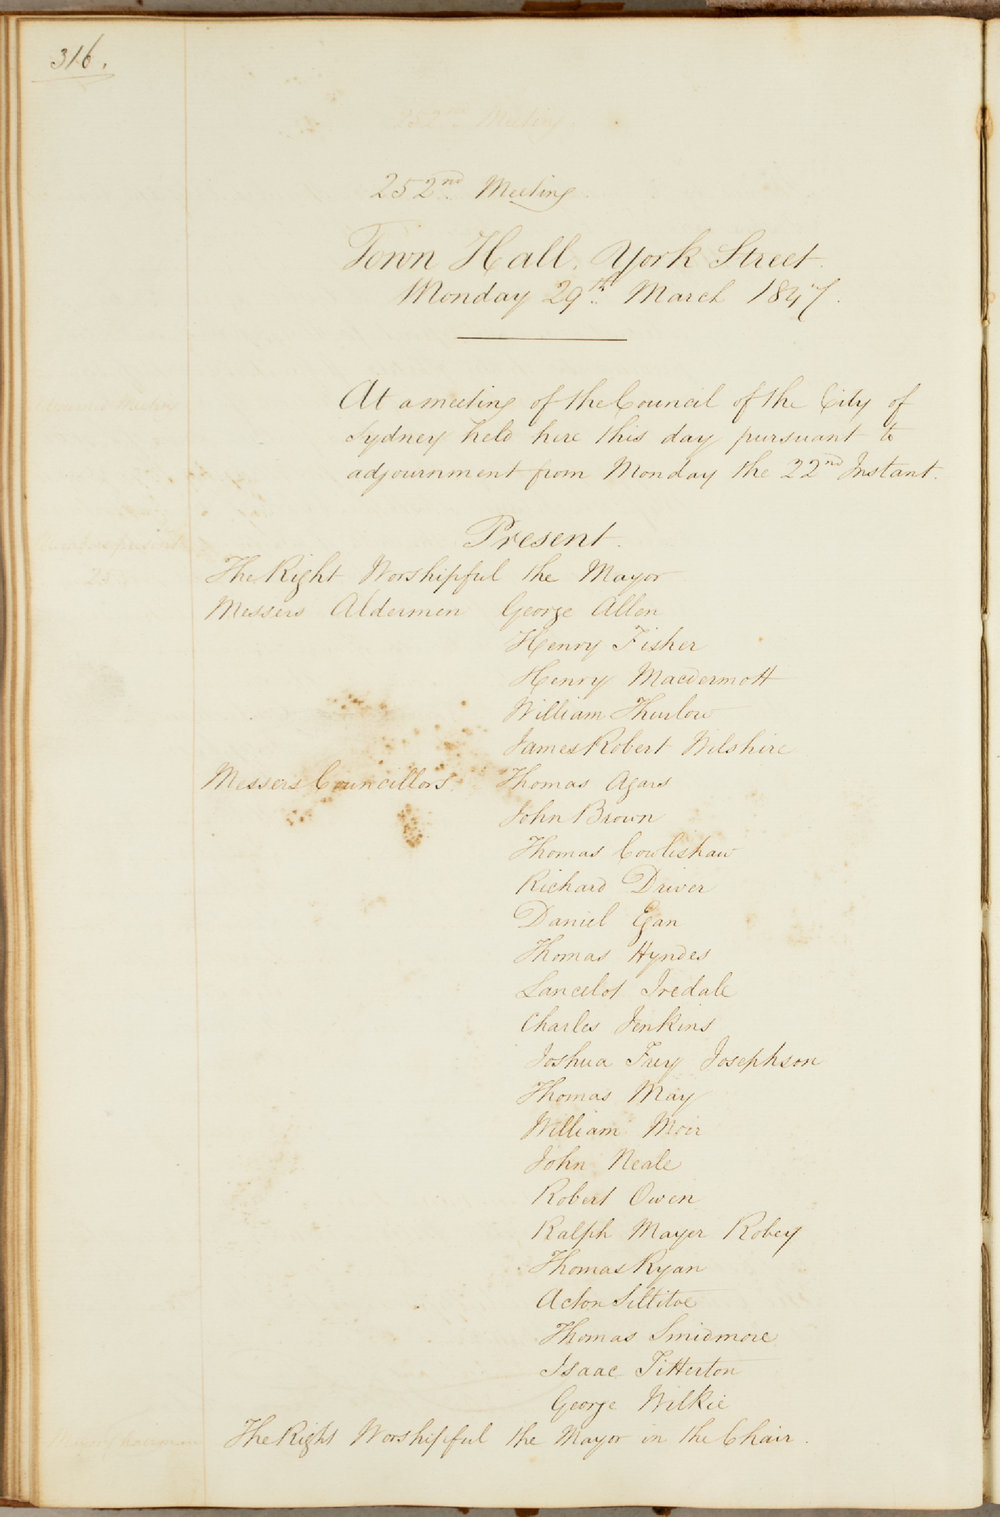 316.
252nd Meeting.
Town Hall. York Street.
Monday 29th. March 1847.
At a meeting of the Council of the City of
Sydney held here this day pursuant to
adjournment from Monday the 22nd Instant.
Present.
The Right Worshipful the Mayor
Messers Aldermen George Allen
Henry Fisher
Henry Macdermott
William Thurlow
James Robert Wilshire
Messers Councillors. Thomas Agars
John Brown
Thomas Cowlishaw
Richard Driver
Daniel Egan
Thomas Hyndes
Lancelot Iredale
Charles Jenkins
Joshua Frey Josephson
Thomas May
William Moir
John Neale
Robert Owen
Ralph Mayer Robey
Thomas Ryan
Acton Sillitoe
Thomas Smidmore
Isaac Titterton
George Wilkie
The Right Worshipful the Mayor in the Chair.